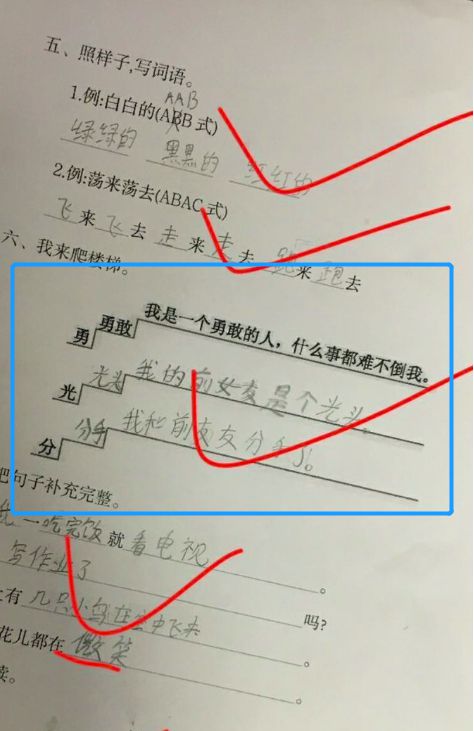 五、照样子,写词语。
AAB
1.例:白白的(ABB式)
绿绿的 黑黑的 红红的
2.例:荡来荡去(ABAC式)
飞来飞去 走来走去 跑来跑去
六、我来爬楼梯。
勇 勇敢 我是一个勇敢的人，什么事都难不倒我。
光 光头 我的前女友是个光头。
分 分手 我和前女友分手了!
把句子补充完整。
一吃完饭就看电视
写作业了。
有几只小鸟在空中飞来吗?
花儿都在微笑。
读。